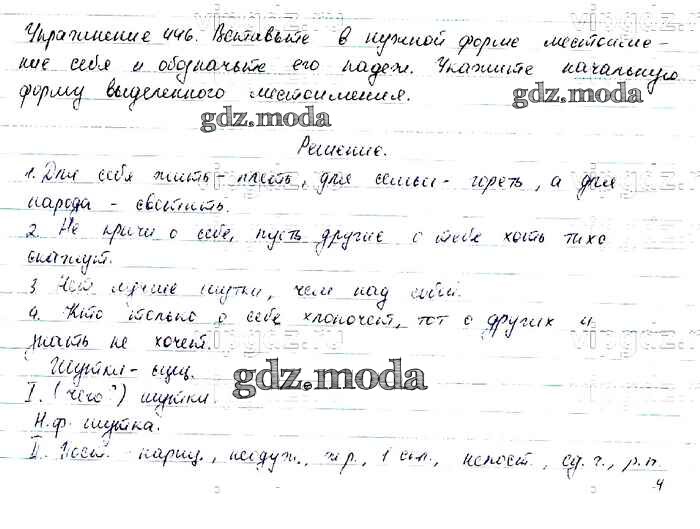 Упражнение 446. Вставьте в нужной форме местоиме-
ние себя и обозначьте его падеж. Укажите начальную
форму выделенного местоимения.
gdz.moda
gdz.moda
Решение.
1. Для себя жить - тлеть, для семьи - гореть, а для
народа - светить.
2. Не кричи о себе, пусть другие о тебе хоть тихо
скажут.
3. Нет лучше шутки, чем над собой.
4. Кто только о себе хлопочет, тот о других и
знать не хочет.
Шутки - сущ.
gdz.moda
I. (чего?) шутки.
Н.ф. шутка.
II. Пост. нариц., неодуш., ж.р., 1 скл., непост., ед.ч., р.п.
4